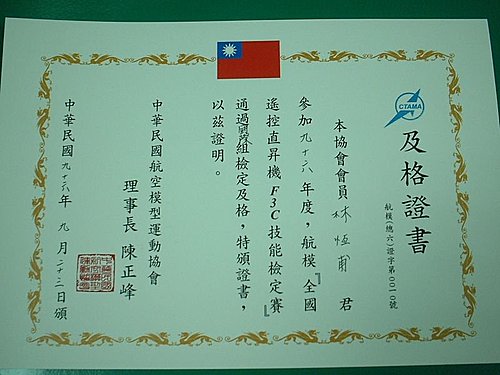 CTAMA
及格證書
航模(總六)證字第0010號
本協會會員林恆甫君
參加九十六年度，航模『全國
遙控直昇機F3C技能檢定賽』
通過 組檢定及格，特頒證書，
以茲證明。
中華民國航空模型運動協會
理事長 陳正峰
中華民國九十六年九月二十三日頒